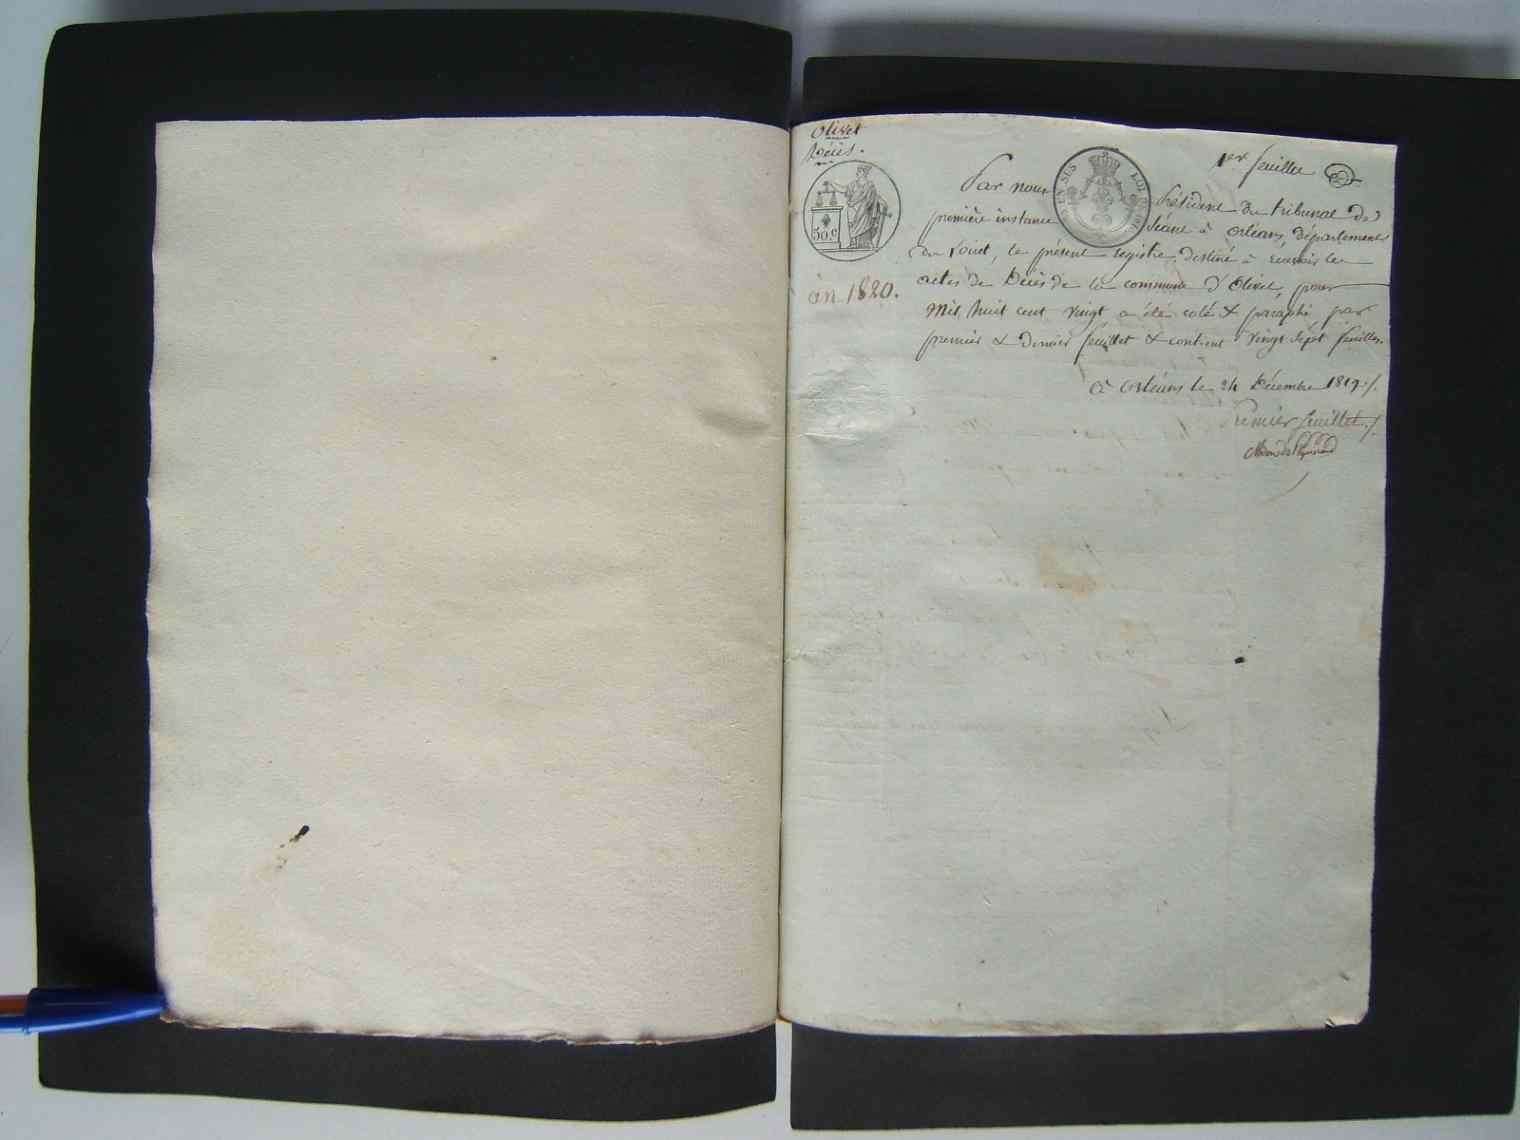 Olivet
Décès.
1er feuillet
50 c
EN SUS
an 1820.
Par nous Président du tribunal de
première instance séant à Orléans, département
du Loiret, le présent registre destiné à recevoir les
actes de Décès de la commune d'Olivet, pour
mil huit cent vingt a été coté & paraphé par
premier & dernier feuillet & contient vingt sept feuilles.
à Orléans le 24 Décembre 1819./.
Premier feuillet./.